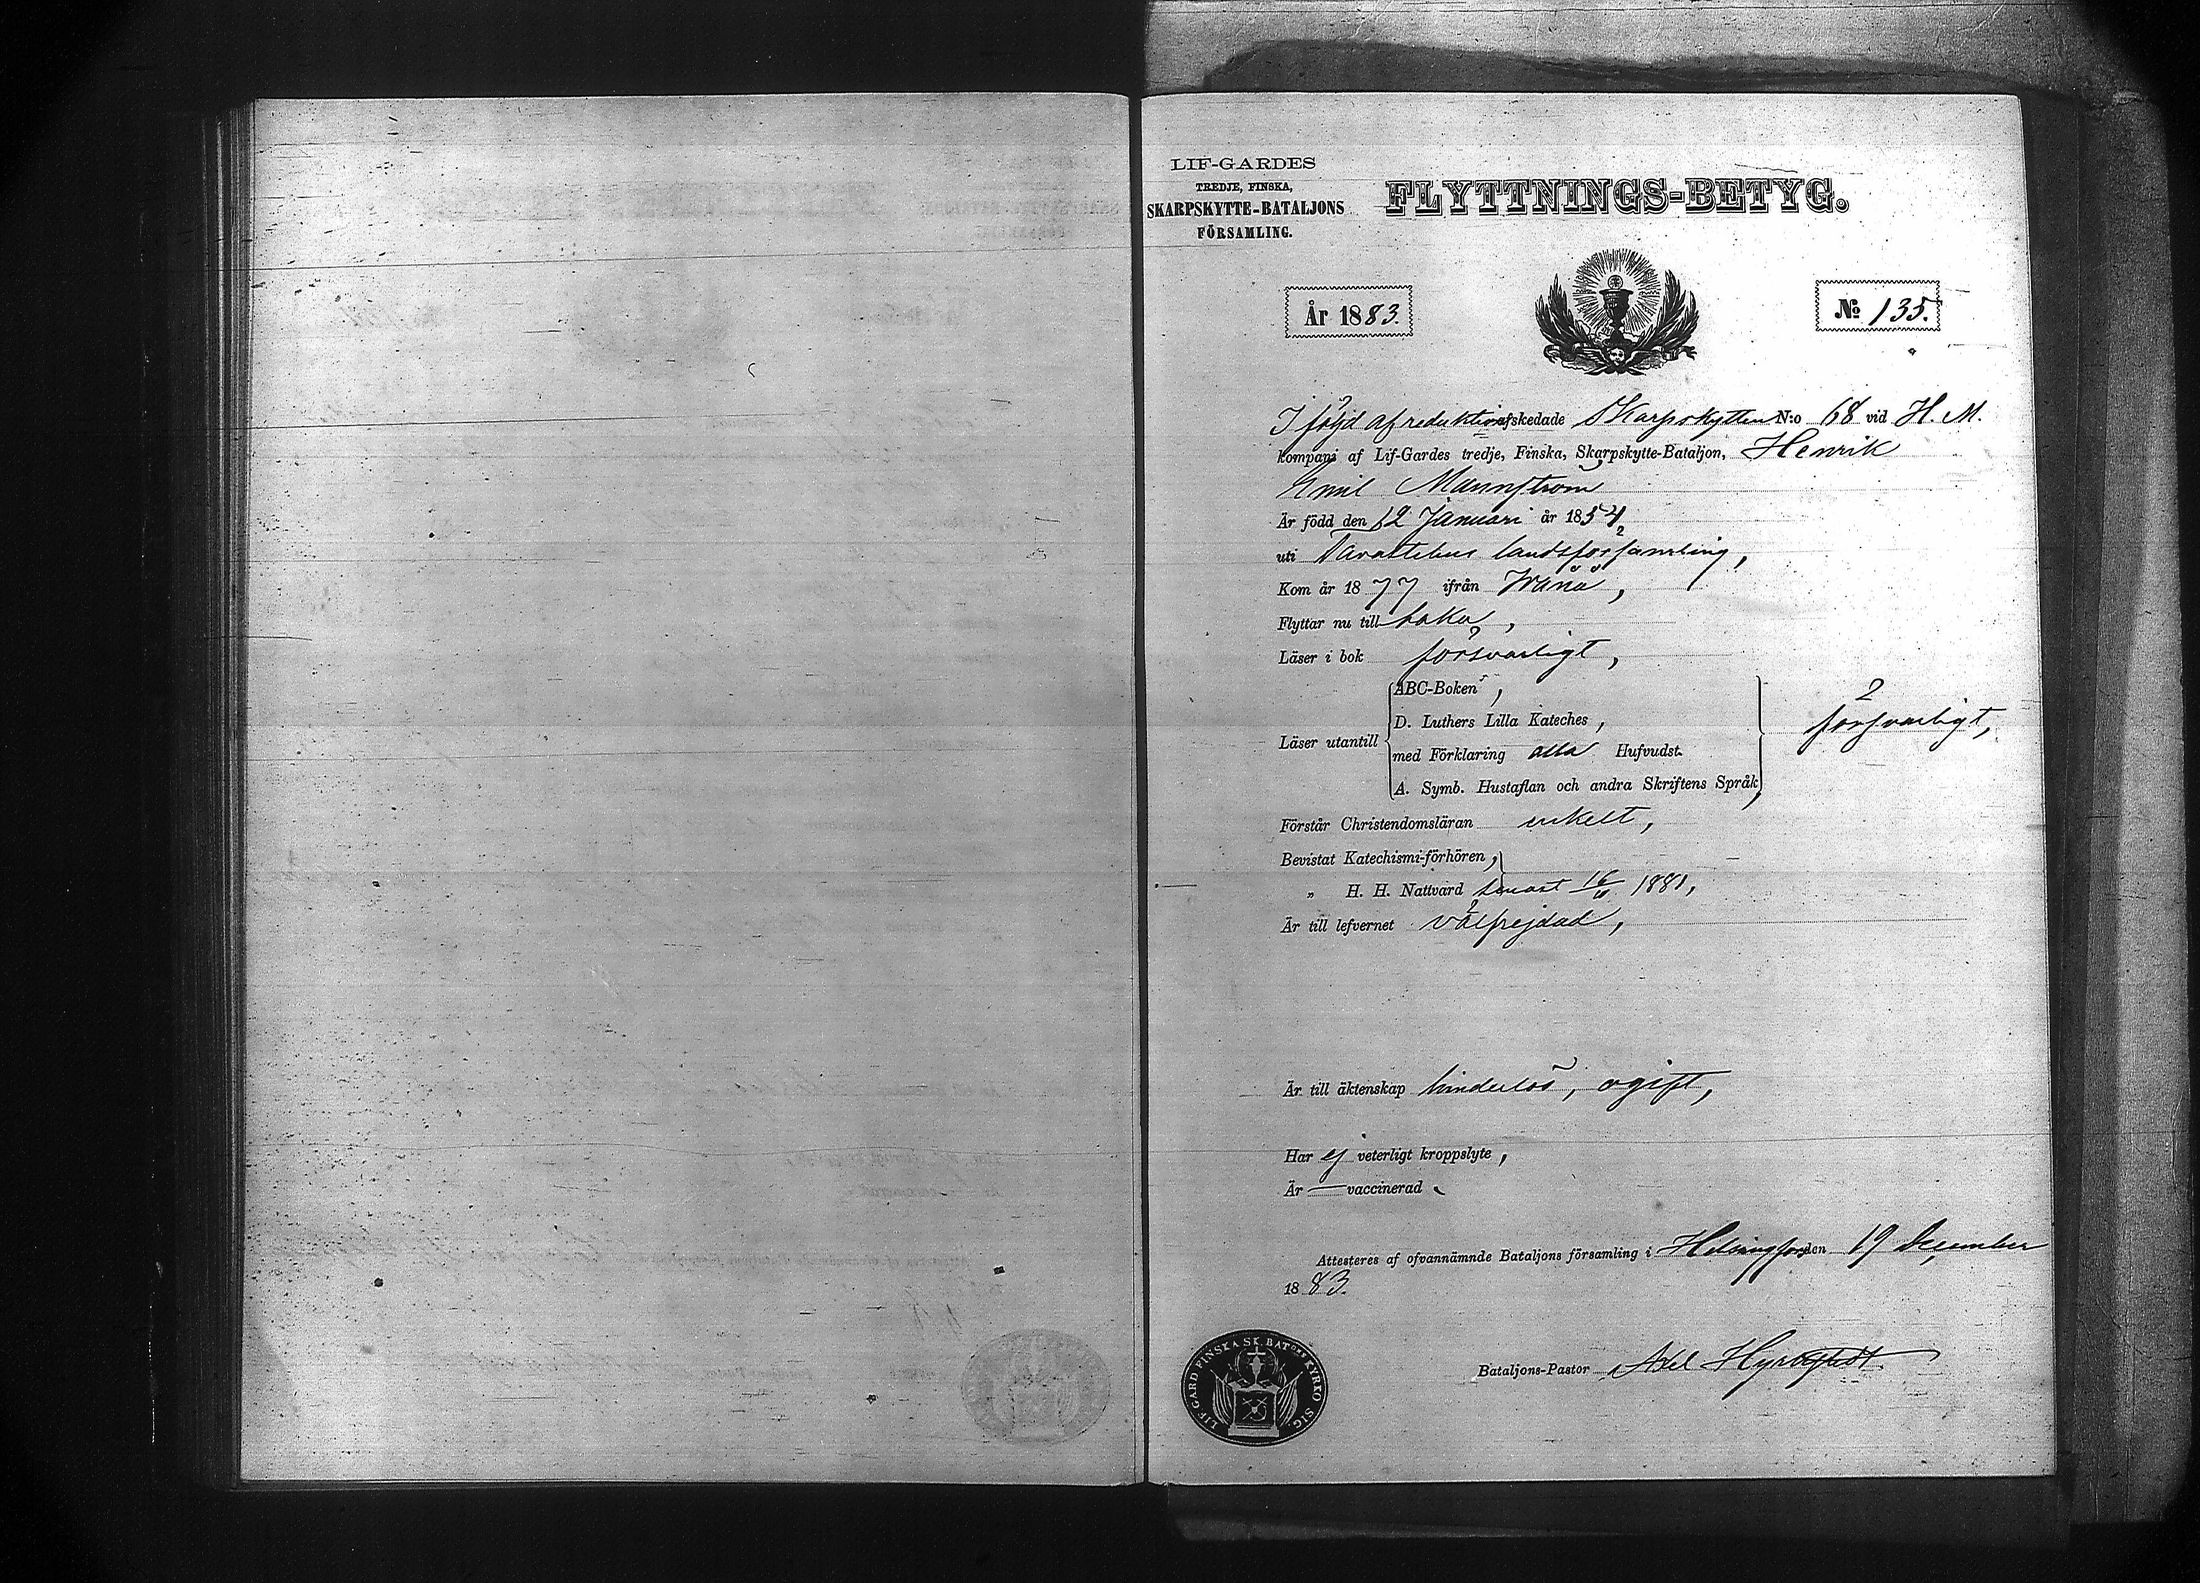 LIF-GARDES
TREDJE, FINSKA,
SKARPSKYTTE-BATALJONS
FÖRSAMLING.
FLYTTNINGS-BETYG.
År 1883.
No 135.
I följd af reduktion afskedade Skarpskytten N:o 68 vid H. M.
kompani af Lif-Gardes tredje, Finska, Skarpskytte-Bataljon, Henrik
Emil Mannström
Är född den 12 Januari år 1854,
uti Tavastehus landsförsamling,
Kom år 1877 ifrån Wånå,
Flyttar nu till baka,
Läser i bok försvarligt,
Läser utantill
ABC-Boken,
D. Luthers Lilla Kateches,
med Förklaring alla Hufvudst.
A. Symb. Hustaflan och andra Skriftens Språk,
försvarligt,
Förstår Christendomsläran enkelt,
Bevistat Katechismi-förhören,
„ H. H. Nattvard senast 16/ 1881,
Är till lefvernet välfrejdad,
Är till äktenskap hinderlös, ogift,
Har ej veterligt kroppslyte,
Är — vaccinerad.
Attesteres af ofvannämnde Bataljons församling i Helsingfors den 19 December
1883.
Bataljons-Pastor Axel
LIF-GARD FINSKA SK. BATONS KYRKO SIG.